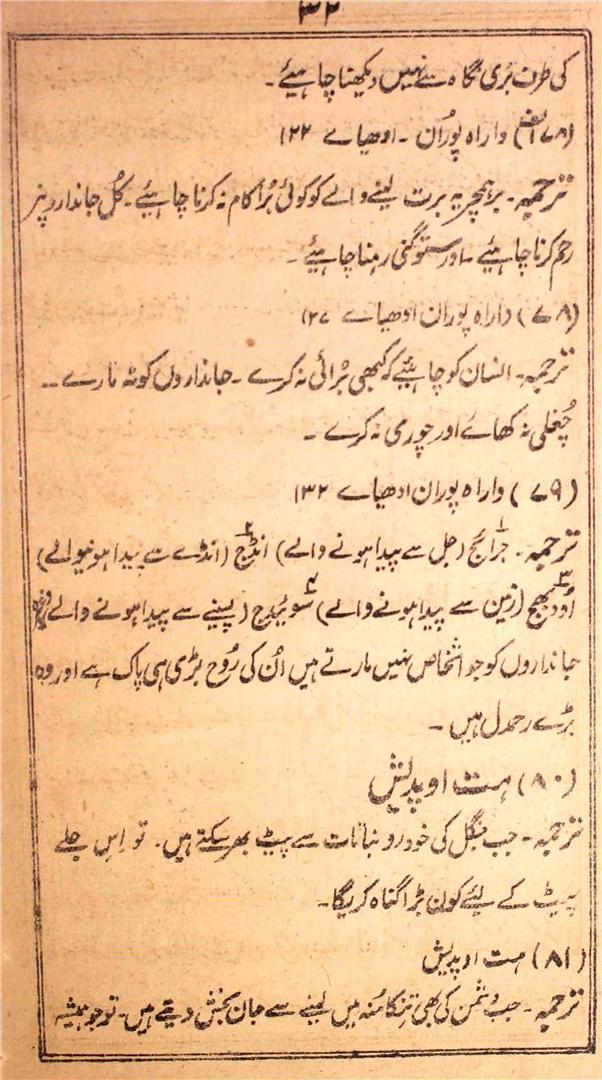 ۳۲
کی طرف بُری نگاہ سے نہیں دیکھنا چاہیئے۔
واراہ پوران ۔ ادھیاے ۲۲)
ترجمہ۔ برہمچریہ برت لینے والے کو کوئی بُرا کام نہ کرنا چاہیئے۔ کُل جانداروں پر
رحم کرنا چاہیئے ۔ اور ستوگنی رہنا چاہیئے ۔
(۷۸) واراہ پوران ادھیاے ۲۷)
ترجمہ۔ انسان کو چاہیئے کہ کبھی بُرائی نہ کرے ۔ جانداروں کو نہ مارے ۔۔
چُغلی نہ کھاے اور چوری نہ کرے ۔
(۷۹) واراہ پوران ادھیاے ۱۳۲)
ترجمہ۔ جرائج (حمل سے پیدا ہونے والے) ۲ انڈج (انڈے سے پیدا ہونیوالے)
۳ اودبھج (زمین سے پیدا ہونے والے) ۴ سویدج (پسینے سے پیدا ہونے والے)
جانداروں کو جو اشخاص نہیں مارتے ہیں اُن کی رُوح بڑی ہی پاک ہے اور وہ
بڑے رحمدل ہیں ۔
(۸۰) ہت اوپدیش
ترجمہ ۔ جب جنگل کی خودرو نباتات سے پیٹ بھر سکتے ہیں۔ تو اِس جلے
پیٹ کے لیئے کون بڑا گناہ کریگا۔
(۸۱) ہت اوپدیش
ترجمہ ۔ جب دشمن کی بھی تنکا مُنہ میں لینے سے جان بخش دیتے ہیں۔ تو جو ہمیشہ